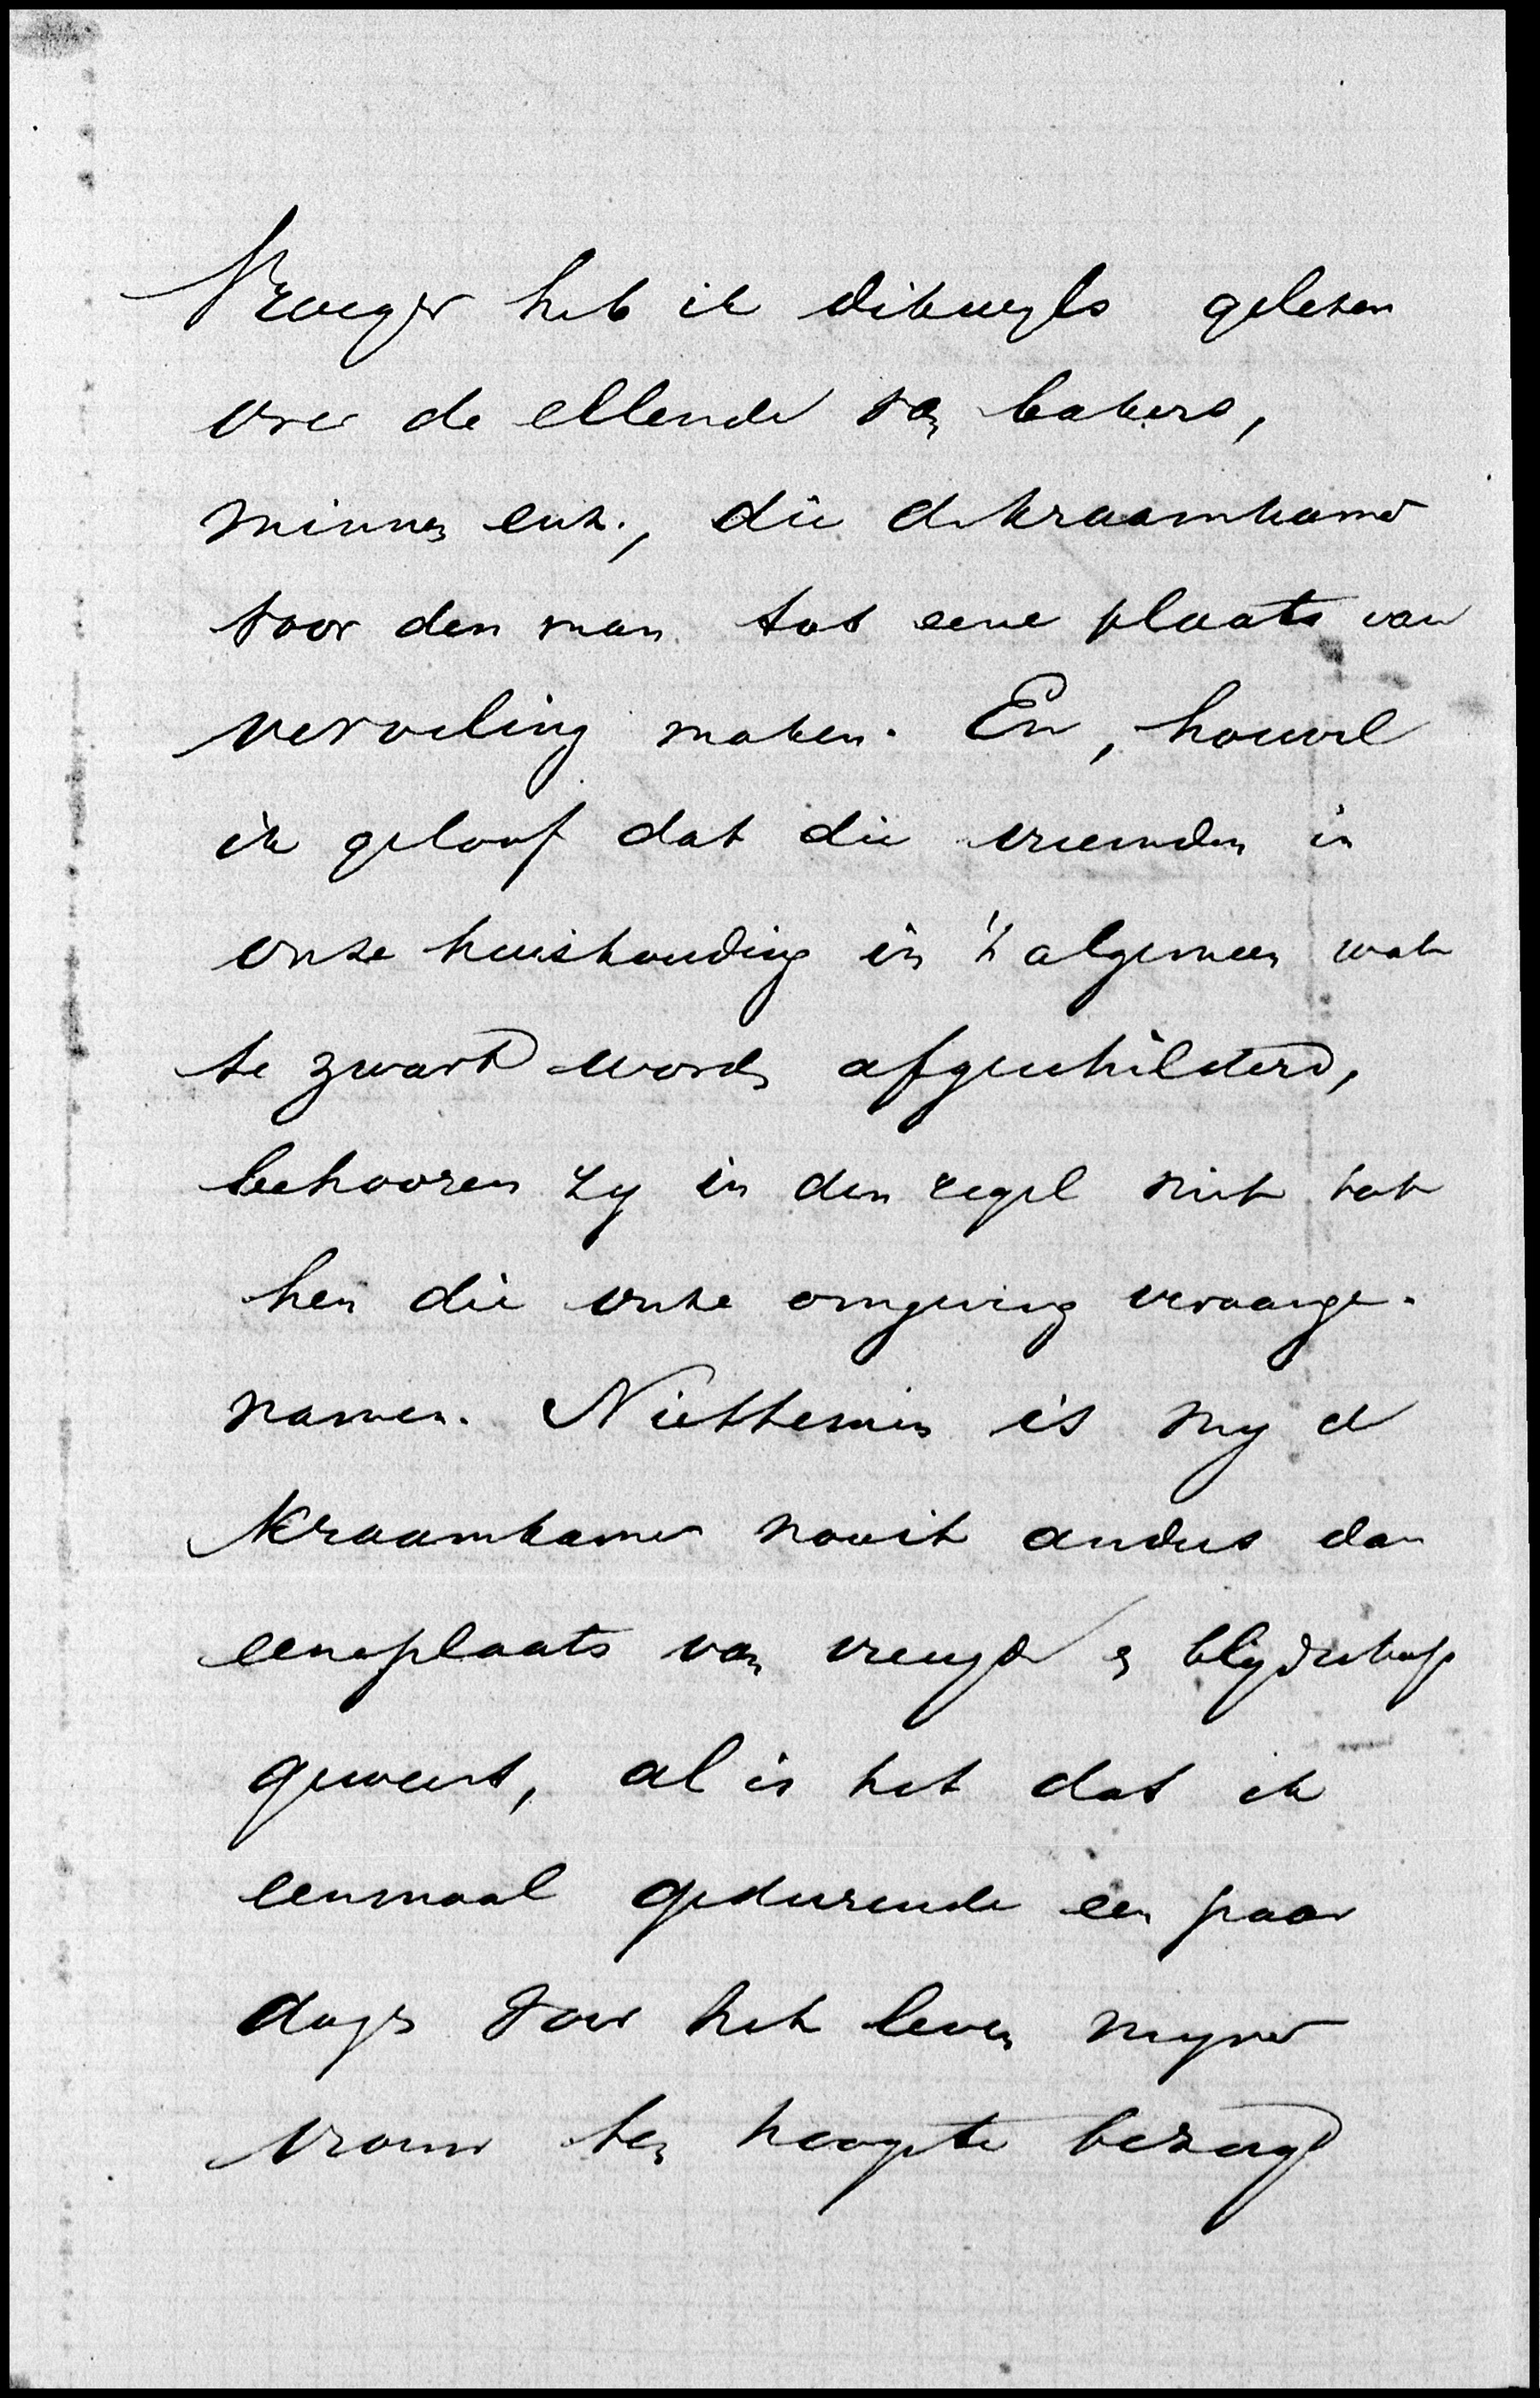 Vroeger heb ik dikwyls gelezen
over de ellende van bakers,
minnen enz., die de kraamkamer
voor den man tot eene plaats van
verveling maken. En, hoewel
ik geloof dat die vreemden in
onze huishouding in 't algemeen wat
te zwart worden afgeschilderd,
behooren zy in den regel niet tot
hen die onze omgeving veraange-
namen. Niettemin is my de
kraamkamer nooit anders dan
eene plaats van vreugde en blydschap
geweest, al is het dat ik
eenmaal gedurende een paar
dagen voor het leven myner
vrouw ten hoogste bezorgd